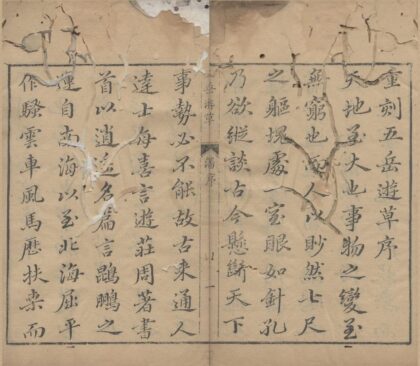 重刻五岳遊草序
天地至大也事物之變至
無窮也而人以眇然七尺
之軀塊處一室眼如針孔
乃欲縱談古今懸斷天下
岳游草 序 一
事勢必不能故古來通人
達士每喜言遊莊周著書
首以逍遙名篇言鵾鵬之
運自南海以至北海屈平
作騷雲車風馬歷扶桒而